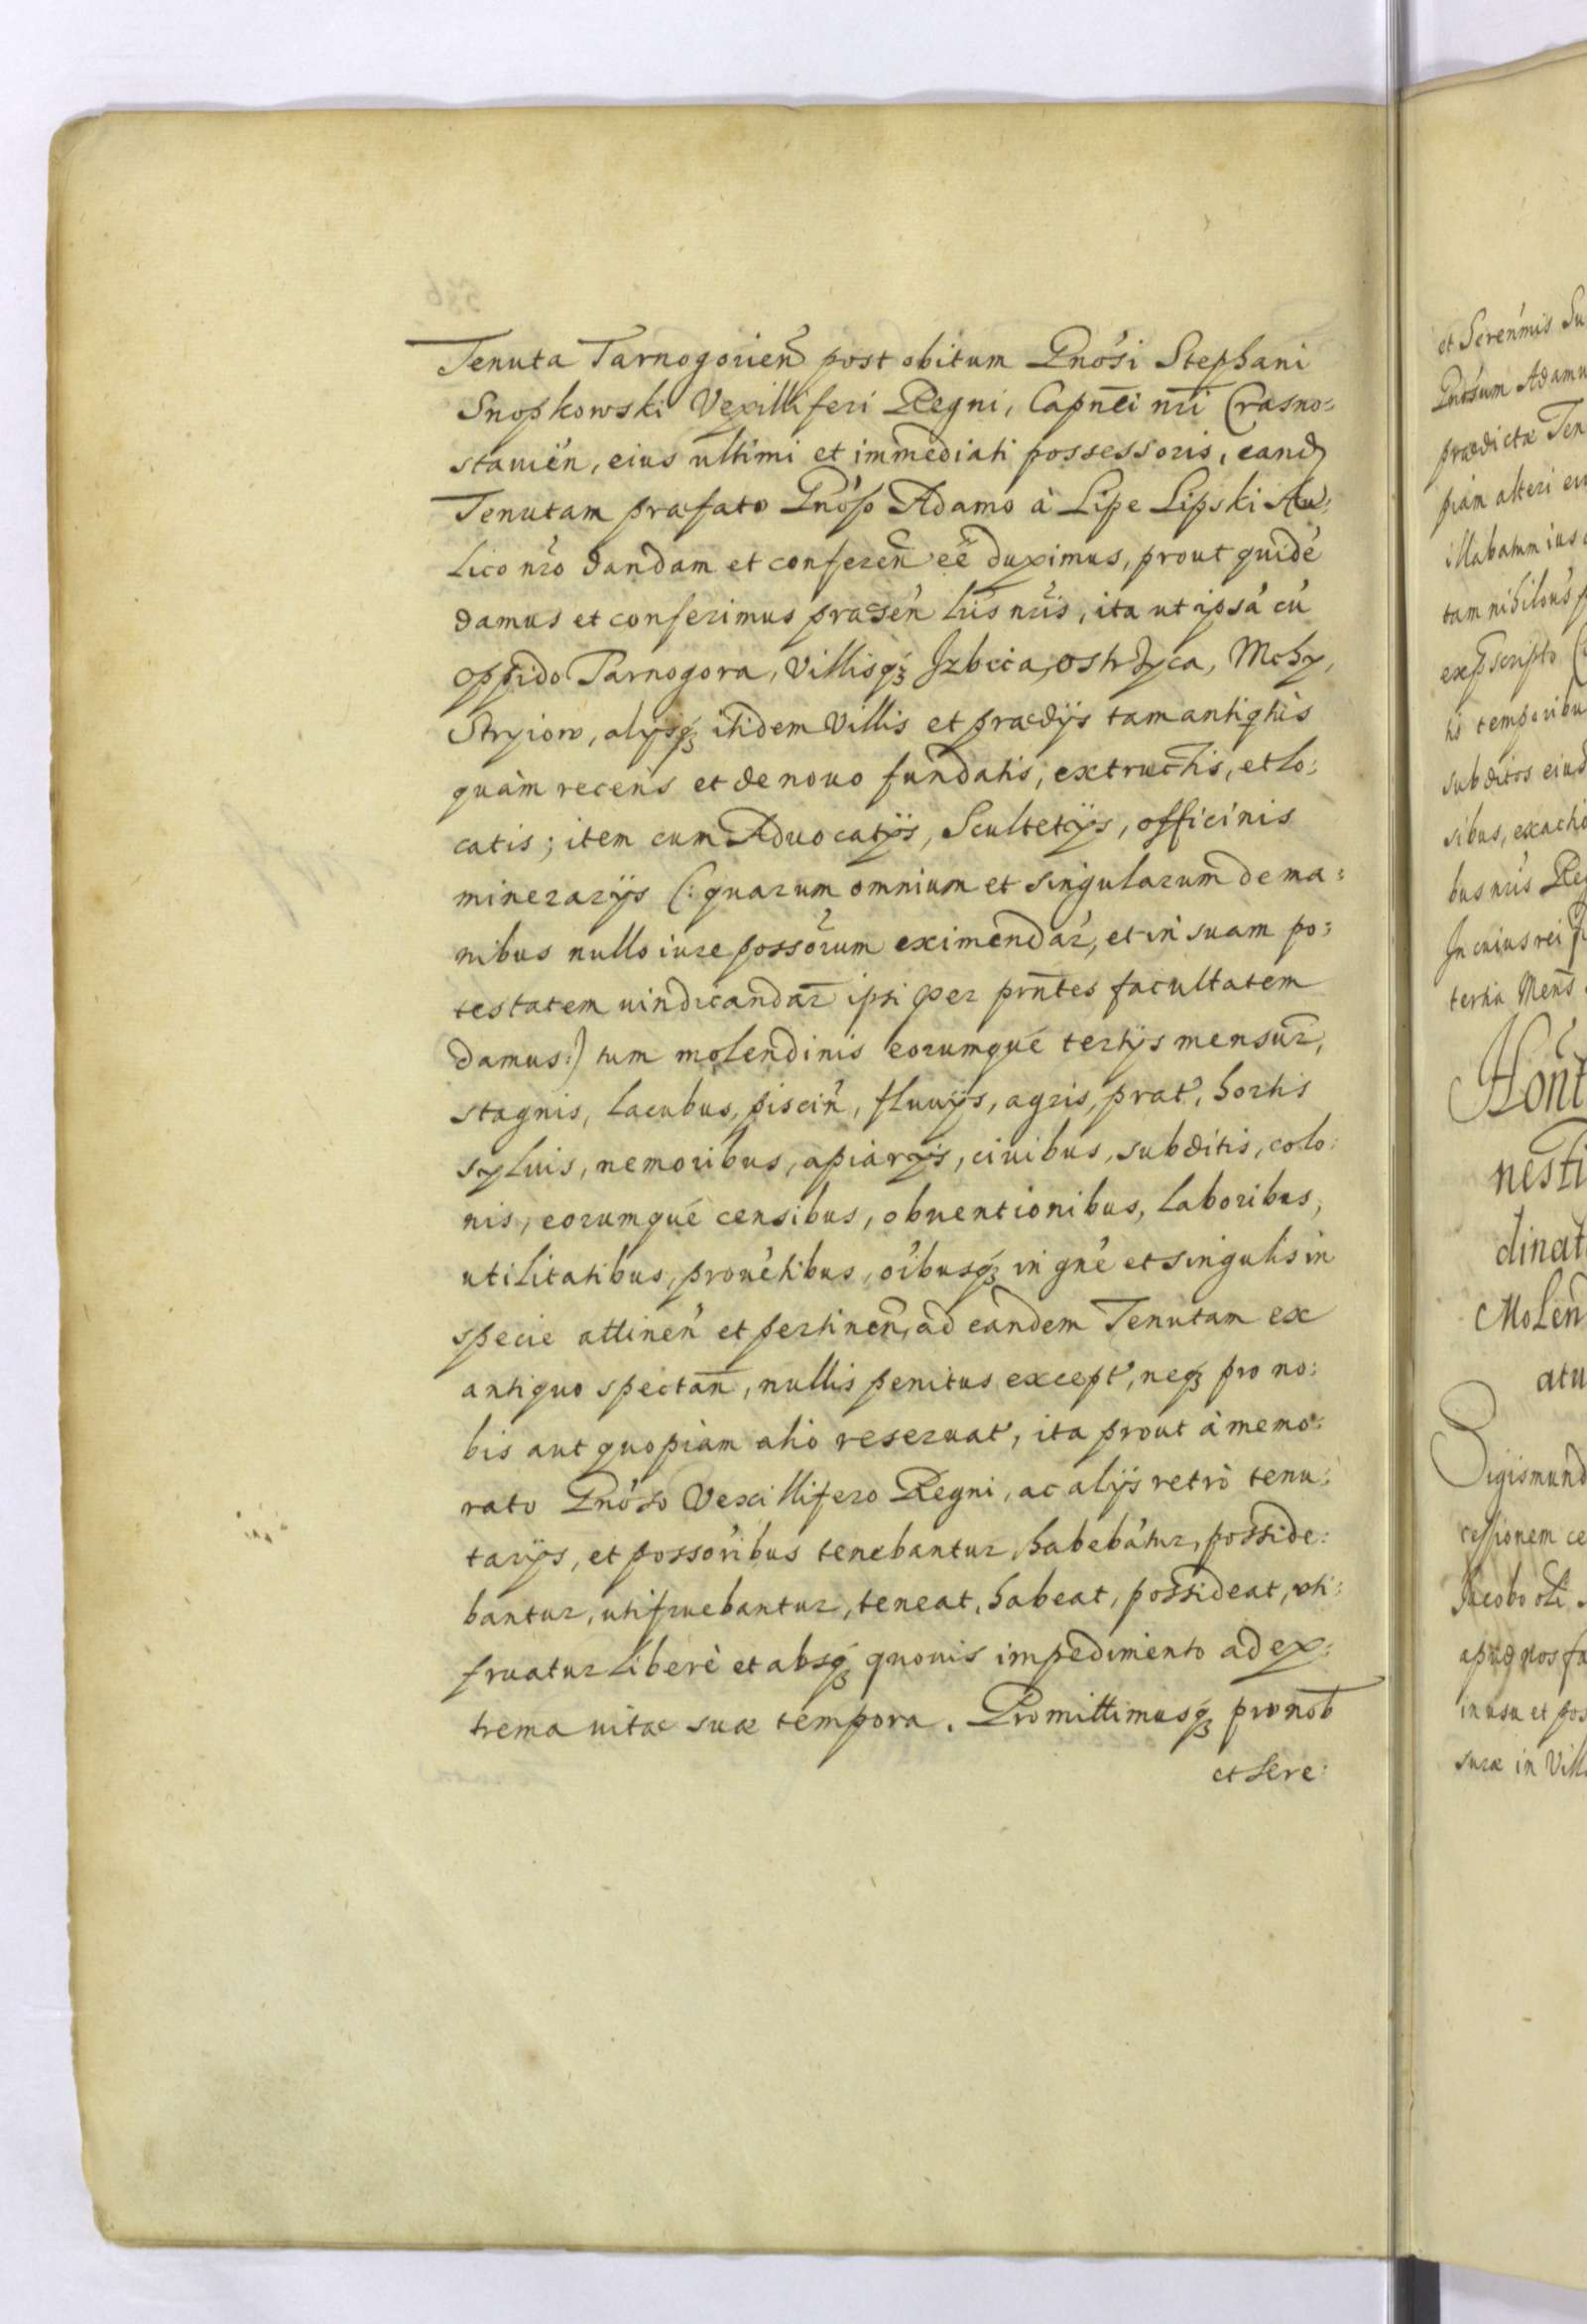 Tenuta Tarnogorień post obitum Gnósi Stephani
Snopkowski Vexilliferi Regni, Capn̄ei nr̄i Crasno:
stauień, eius ultimi et immediati possessoris, eand̄
Tenutam præfato Gnóso Adamo à Lipe Lipski Au:
lico nr̄o dandam et conferen̄ eē duximus, prout quidé
damus et conferimus præsén lr̄is nr̄is, ita ut ipsá cú
oppido Tarnogora, Villisqȝ Jzbica, Ostrzyca, Mchy,
Stryiow, alijsqȝ itidem Villis et prædijs tam antiqtùs
quàm recens et de nouo fundatis, extructis, et lo:
catis; item cum Aduocatijs, Scultetijs, officinis
minerarijs (: quarum omnium et singularum de ma:
nibus nullo iure possōrum eximendar̄, et in suam po:
testatem uindicandar̄ ipsi per prn̄tes facultatem
damus:) tum molendinis eorumqué tertijs mensur̄,
stagnis, lacubus, piscin̄, fluuijs, agris, prat̄, hortis
syluis, nemoribus, apiarijs, ciuibus, subditis, colo:
nis, eorumqué censibus, obuentionibus, laboribus,
utilitatibus, prouétibus, oībusqȝ in gnē et singulis in
specie attinen̄ et pertinen̄, ad eandem Tenutam ex
antiquo spectan̄, nullis penitus except̄, neqȝ pro no:
bis aut quopiam alio reseruat̄, ita prout à memo:
rato Gnóso Vexillifero Regni, ac alijs retrò tenu:
tarijs, et possōribus tenebantur, habebátur, posside:
bantur, utifruebantur, teneat, habeat, possideat, uti:
fruatur liberè et absqȝ quouis impedimento ad ex:
trema uitae suæ tempora. Promittimusqȝ pro nob̄
et Sere:
et Seren̄mis Su
Gnósum Adamu
prædictæ Ten
piam alteri
illabatum ius
tam nihilous
tis temporibu
subditos eius
sibus,
bus nr̄is Reg
In cuius rei
tertia Mens̄
Hon̄
nesti
dinat
Molen̄
atu
Sigismund
cessionem ce
Jacobo
apud nos fa
in usu et pos
suræ in Vill